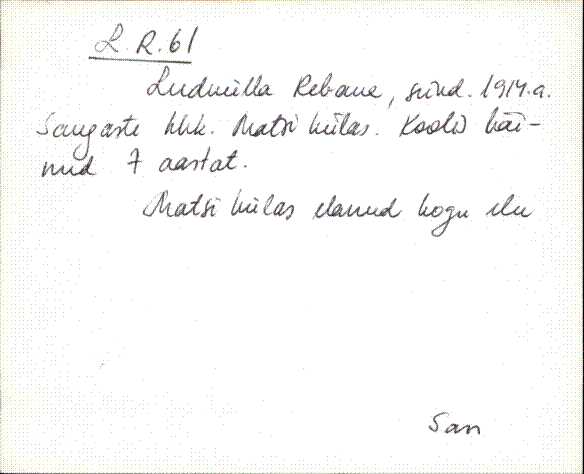 L. R. 61
Ludmilla Rebane, sünd. 1914.a.
Sangaste khk. Matsi külas. Koolis käi-
nud 7 aastat.
Matsi külas elanud kogu elu
San